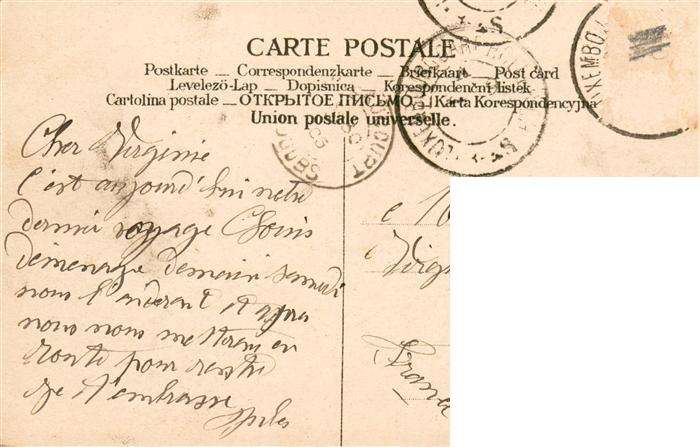 CARTE POSTALE
Postkarte — Correspondenzkarte — Briefkaart — Post card
Levelező-Lap — Dopisnica — Korespondenční listek
Cartolina postale — ОТКРЫТОЕ ПИСЬМО — Karta Korespondencyjna
Union postale universelle.
Cher Virginie
C'est aujourd'hui notre
dernier voyage Louis
demenage demain samedi
nous l'aideront et apres
nous nous mettrons en
route pour rentre
Je t'embrasse
Jules
e
Virg
France
LUXEMBO